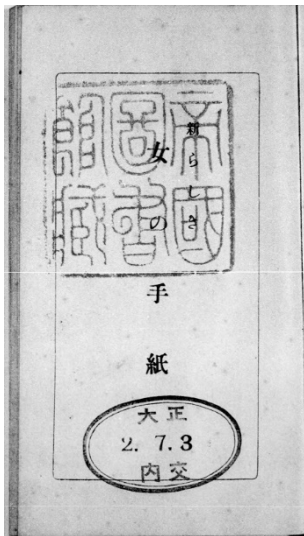 帝國
圖書
館藏
新らしき
女の手紙
大正
2. 7. 3
内交